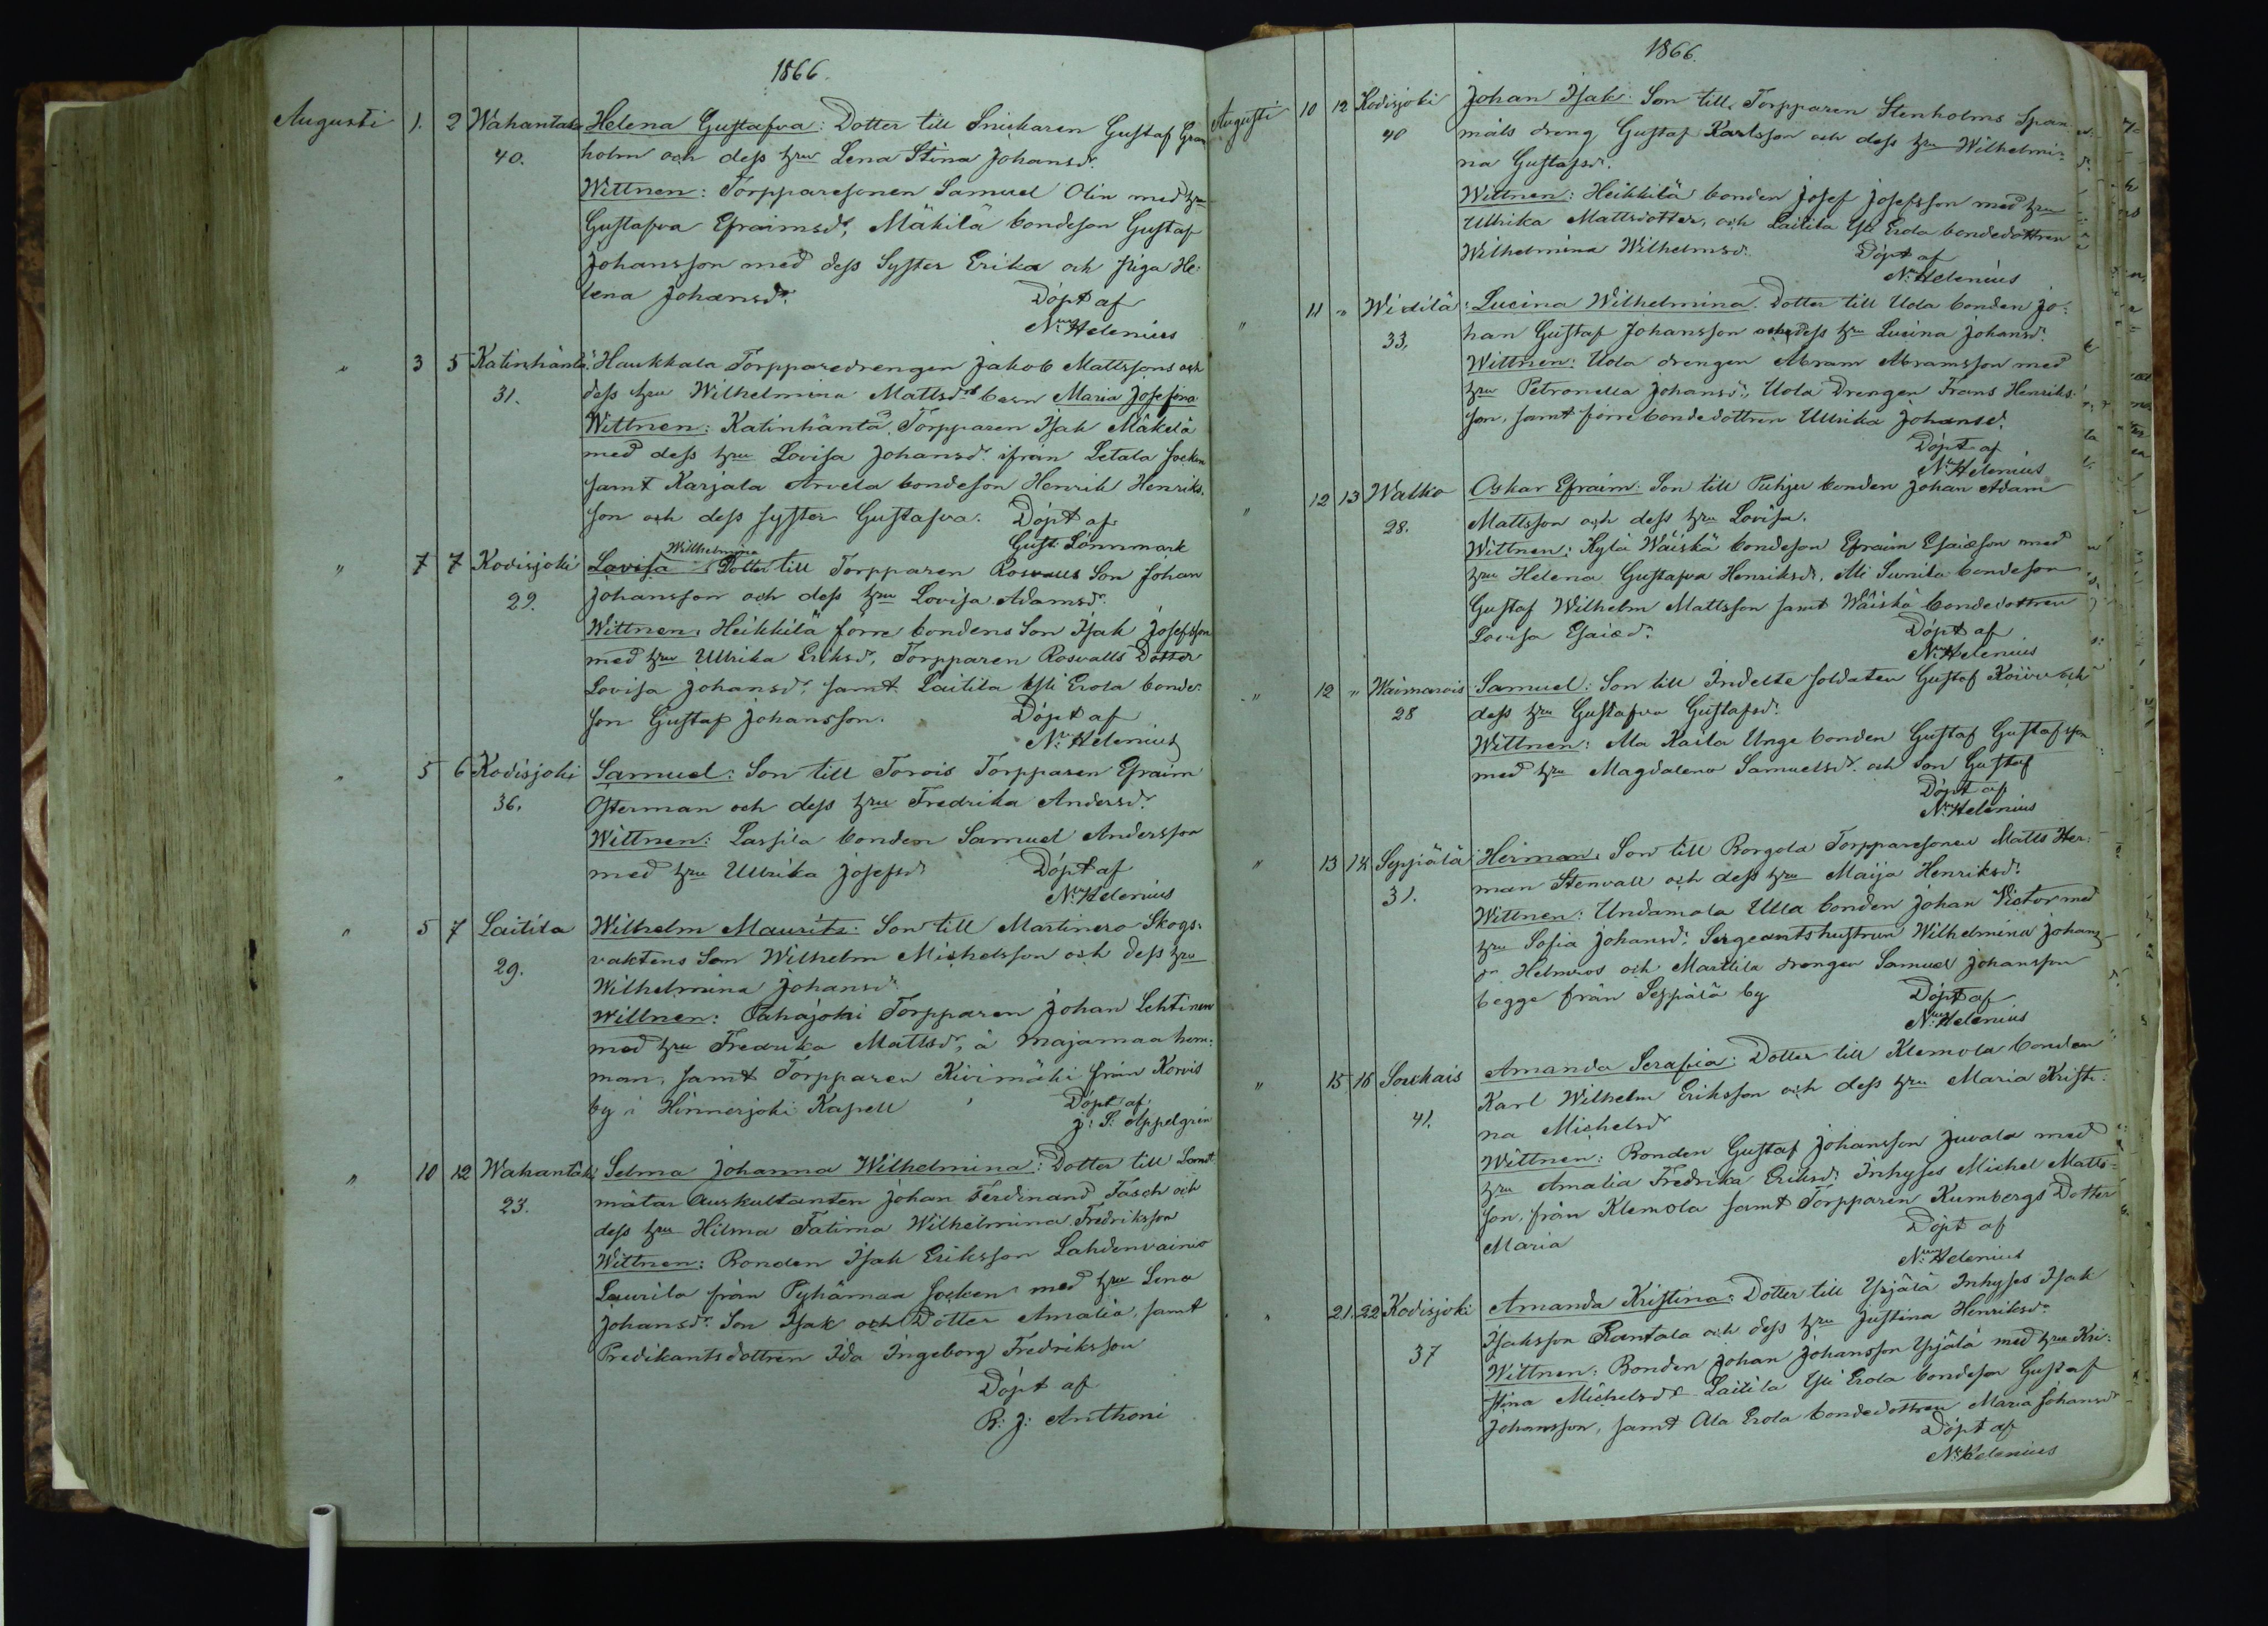 1866.
Augusti 1. 2 Wahantaka Helena Gustafva: Dotter till Snickaren Gustaf Gran
40. holm och dess hru Lena Stina Johansdr.
Wittnen: Torpparesonen Samuel Olin med hru
Gustafva Efraimsdr, Mäkilä bondeson Gustaf
Johansson med dess Syster Erika och piga He-
lena Johansdr. Döpt af
N. Helenius
" 3 5 Katinhänta: Haukkala Torpparedrengen Jakob Mattssons och
31. dess hru Wilhelmina Mattsdrs barn Maria Josefina
Wittnen: Katinhäntä Torpparen Isak Mäkelä
med dess hru Lovisa Johansdr. ifrån Letala socken
samt Karjala Arvela bondeson Henrik Henriks-
son och dess syster Gustafva. Döpt af
Gust. Lönnmark
Willhelmina
" 7 7 Kodisjoki Lovisa Dotter till Torpparen Rosvalls Son Johan
29. Johansson och dess hru Lovisa Adamsdr.
Wittnen: Heikkilä förre bondens Son Isak Josefsson
med hru Ullrika Eriksdr, Torpparen Rosvalls Dotter
Lovisa Johansdr, samt Laitila Yli Erola bonde-
son Gustaf Johansson. Döpt af
N. Helenius
" 5 6 Kodisjoki Samuel: Son till Torois Torpparen Efraim
36. Österman och dess hru Fredrika Andersdr.
Wittnen: Lassila bonden Samuel Andersson
med hru Ullrika Josefsdr Döpt af
N. Helenius
" 5 7 Laitila Wilhelm Maurits: Son till Martinero Skogs-
29. vaktens Son Wilhelm Michelsson och dess hru
Wilhelmina Johansdr
Wittnen: Pahajoki Torpparen Johan Lehtinen
med hru Fredrika Mattsdr, å Majamaa hem-
man, samt Torpparen Kivimäki från Korvis
by i Hinnerjoki Kapell Döpt af
J: S: Appelgrén
" 10 12 Wahantaka Selma Johanna Wilhelmina: Dotter till Landt
23. mätar Auskultanten Johan Ferdinand Tasch och
dess hru Hilma Fatima Wilhelmina Fredriksson
Wittnen: Bonden Isak Eriksson Lahdenvainio
Laurila från Pyhämaa Socken med hru Lena
Johansdr. Son Isak och Dotter Amalia, samt
Predikantsdottren Ida Ingeborg Fredriksson
Döpt af
B: J: Anthoni
1866.
Augusti 10 12 Kodisjoki Johan Isak: Son till Torpparen Stenholms Span-
40 måls dreng Gustaf Karlsson och dess hru Wilhelmi-
na Gustafsdr.
Wittnen: Heikkilä bonden Josef Josefsson med hru
Ulrika Mattsdotter, och Laitila Yli Erola bondedottren
Wilhelmina Wilhelmsdr. Döpt af
N. Helenius
" 11 " Widilä: Lucina Wilhelmina. Dotter till Uola bonden Jo-
33. han Gustaf Johansson och dess hru Lucina Johansdr.
Wittnen: Uola drengen Abram Abramsson med
hru Petronella Johansdr, Uola Drengen Frans Henriks-
son, samt förre bondedottren Ulrika Johansd.
Döpt af
N. Helenius
" 12 13 Walko Oskar Efraim: Son till Puhju bonden Johan Adam
28. Mattsson och dess hru Lovisa.
Wittnen: Kylä Wäiskä bondeson Efraim Esaiæson med
hru Helena Gustafva Henriksdr, Ali Sunila bondeson
Gustaf Wilhelm Mattsson samt Wäiskä bondedottren
Lovisa Esaiæd. Döpt af
N. Helenius
" 12 " Waimarois Samuel: Son till Indelta soldaten Gustaf Koivu och
28 dess hru Gustafva Gustafsdr.
Wittnen: Ala Kaila Unge bonden Gustaf Gustafsson
med hru Magdalena Samuelsdr. och Son Gustaf
Döpt af
N. Helenius
" 13 14 Seppälä Herman. Son till Borgola Torpparesonen Matts Her-
31. man Stenvall och dess hru Maija Henriksdr.
Wittnen: Undamola Ulla bonden Johan Victor med
hru Sofia Johansdr, Sergeantshustrun Wilhelmina Johans-
dr Helmros och Marttila drengen Samuel Johansson
begge från Seppälä by Döpt af
N. Helenius
" 15 16 Soukais Amanda Serafia: Dotter till Klemola bonden
41. Karl Wilhelm Eriksson och dess hru Maria Kristi-
na Michelsdr
Wittnen: Bonden Gustaf Johansson Juvala med
hru Amalia Fredrika Eriksdr. Inhyses Michel Matts-
son, från Klemola samt Torpparen Kumbergs Dotter
Maria Döpt af
N. Helenius
" 21. 22 Kodisjoki Amanda Kristina: Dotter till Yrjälä Inhyses Isak
37 Isaksson Rantala och dess hru Justina Henriksdr.
Wittnen: Bonden Johan Johansson Yrjälä med hru Kri-
stina Michelsdr Laitila Yli Erola bondeson Gustaf
Johansson, samt Ala Erola bondedottren Maria Johansdr
Döpt af
N. Helenius